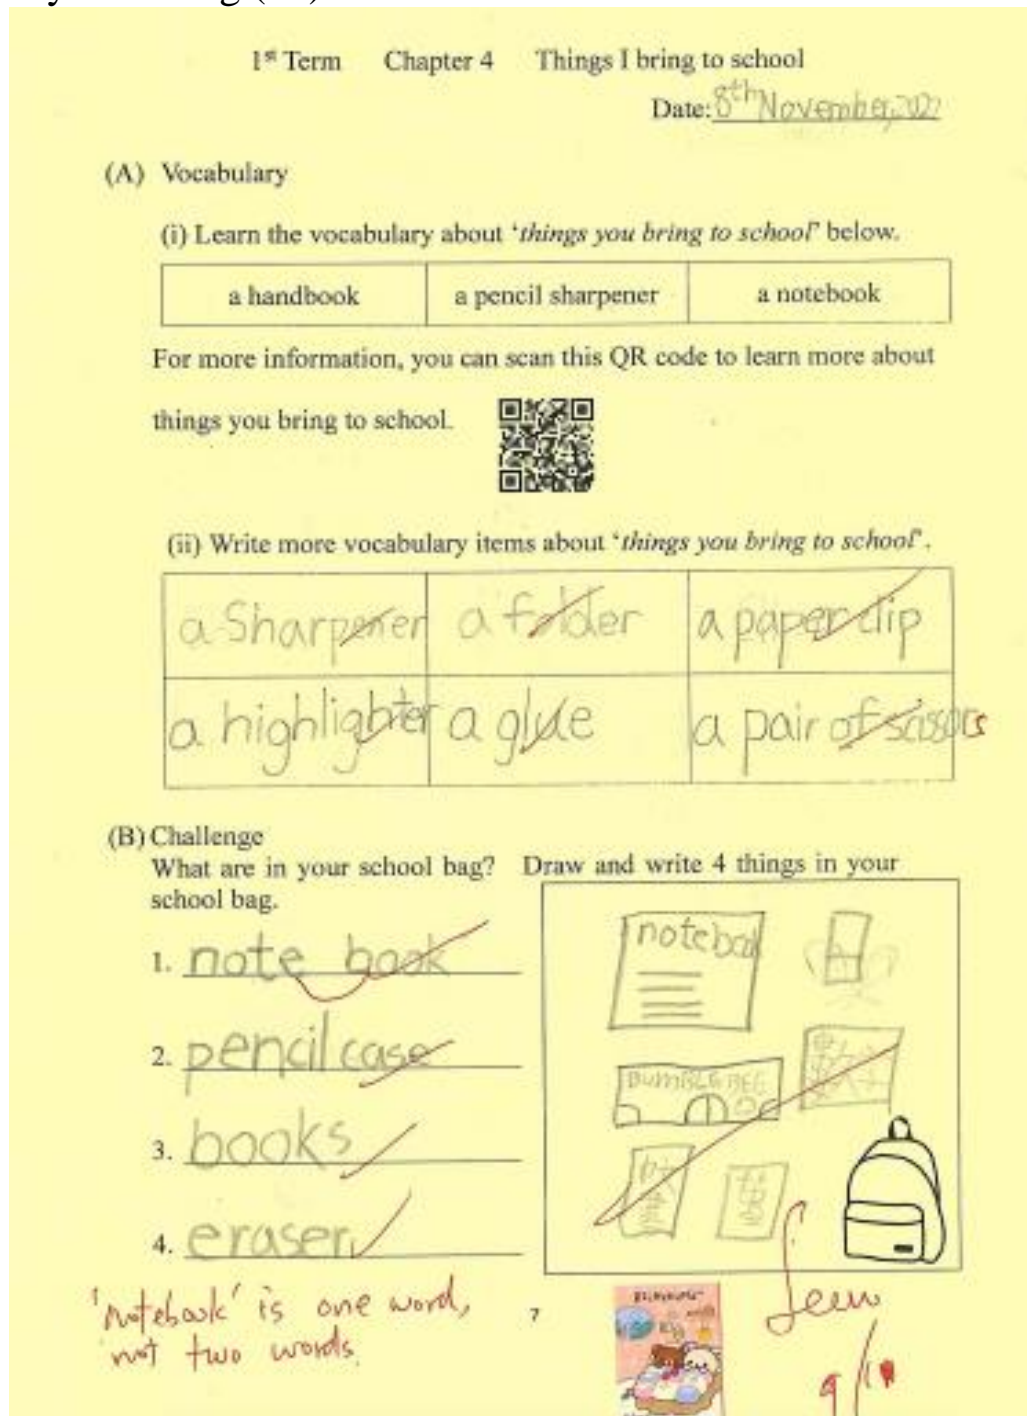 1st Term Chapter 4 Things I bring to school
Date: 8th November, 202
(A) Vocabulary
(i) Learn the vocabulary about ‘things you bring to school’ below.
a handbook a pencil sharpener a notebook
For more information, you can scan this QR code to learn more about
things you bring to school.
(ii) Write more vocabulary items about ‘things you bring to school’.
a Sharpener a folder a paper clip
a highlighter a glue a pair of scissors
(B) Challenge
What are in your school bag? Draw and write 4 things in your
school bag.
1. note book
2. pencil case
3. books
4. eraser
notebook
BUMBLE BEE
'notebook' is one word,
not two words.
7
Seen